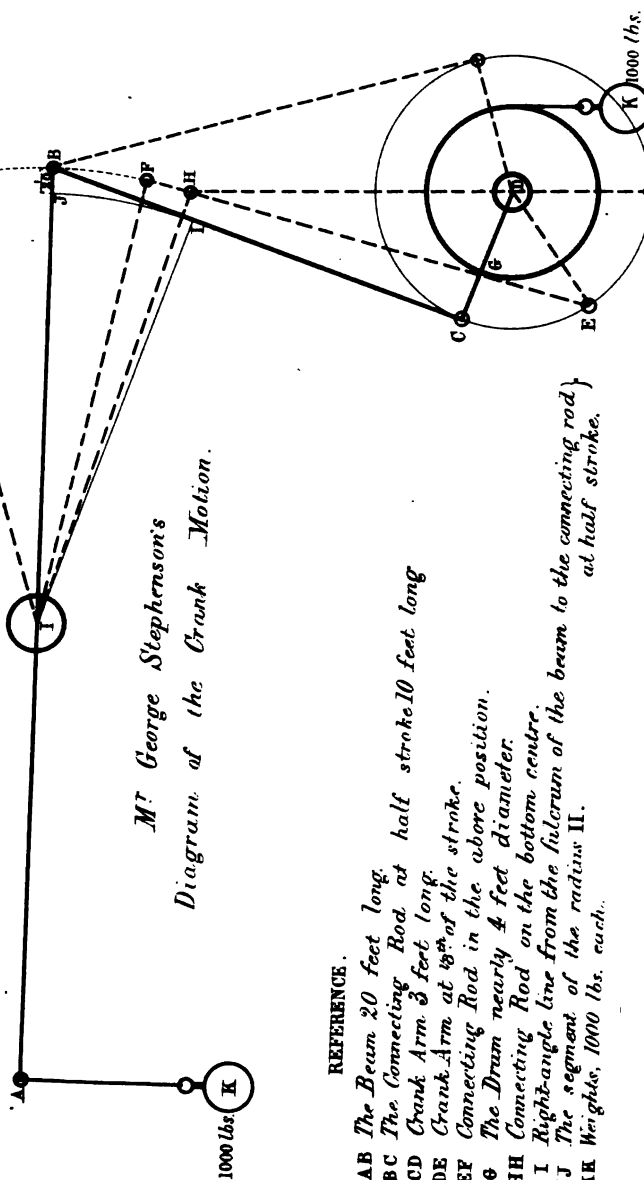 Mr George Stephenson's
Diagram of the Crank Motion.
A
B
J
F
H
I
I
C
G
D
E
K
1000 lbs.
K
1000 lbs.
REFERENCE.
AB The Beam 20 feet long.
BC The Connecting Rod at half stroke 10 feet long
CD Crank Arm 3 feet long.
DE Crank Arm at ⅛th of the stroke.
EF Connecting Rod in the above position.
G The Drum nearly 4 feet diameter.
HH Connecting Rod on the bottom centre.
I Right-angle line from the fulcrum of the beam to the connecting rod } at half stroke.
J The segment of the radius II.
KK Weights, 1000 lbs. each.